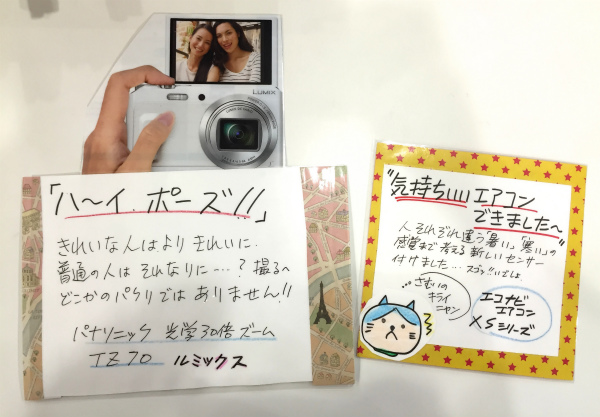 LUMIX
「ハ〜イ、ポーズ!!」
きれいな人はより きれいに、
普通の人は それなりに…? 撮る〜
どこかのパクリでは ありません!!
パナソニック 光学30倍ズーム
TZ70 ルミックス
"気持ちいいエアコン
できました〜"
人 それぞれ違う「暑い」「寒い」の
感覚まで考える新しいセンサー
付けました…スゴッ!!いでしょ
…さむいの
キライ
ニャン
エコナビ
エアコン
XSシリーズ